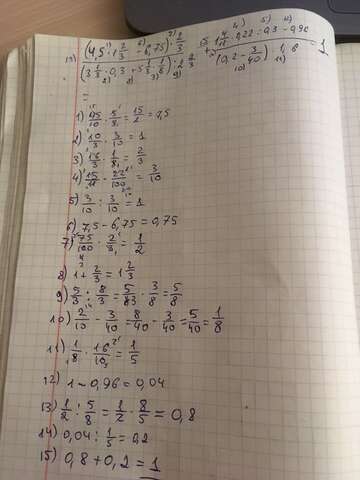 (4,5 · 1 2/3 - 6,75) · 2/3
(3 1/3 · 0,3 + 5 1/3 · 1/8) : 2 2/3
+
1 4/11 · 0,22 : 0,3 - 0,96
(0,2 - 3/40) · 1,6
= 1
1) 45/10 · 5/3 = 15/2 = 7,5
2) 10/3 · 3/10 = 1
3) 16/3 · 1/8 = 2/3
4) 15/11 · 22/100 = 3/10
5) 3/10 : 3/10 = 1
6) 7,5 - 6,75 = 0,75
7) 75/100 · 2/3 = 1/2
8) 1 + 2/3 = 1 2/3
9) 5/3 : 8/3 = 5/3 · 3/8 = 5/8
10) 2/10 - 3/40 = 8/40 - 3/40 = 5/40 = 1/8
11) 1/8 · 16/10 = 1/5
12) 1 - 0,96 = 0,04
13) 1/2 : 5/8 = 1/2 · 8/5 = 0,8
14) 0,04 : 1/5 = 0,2
15) 0,8 + 0,2 = 1